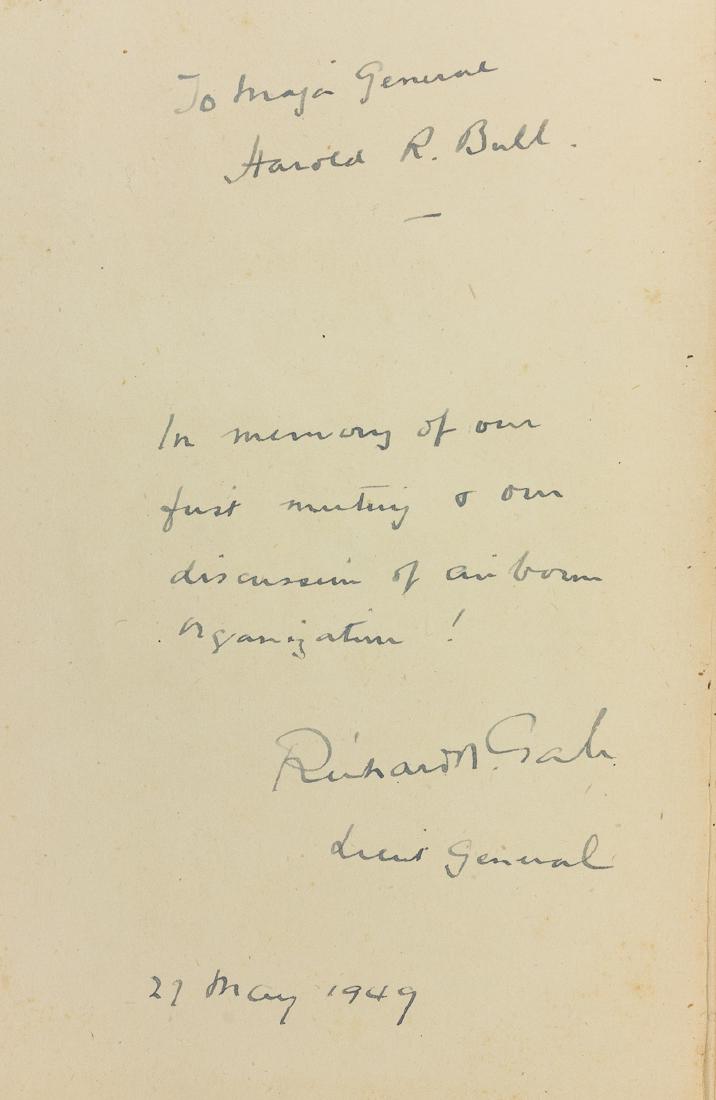 To Major General
Harold R. Bull.
—
In memory of our
first meeting & our
discussion of airborne
organization !
Richard N. Gale
Lieut General
27 May 1949